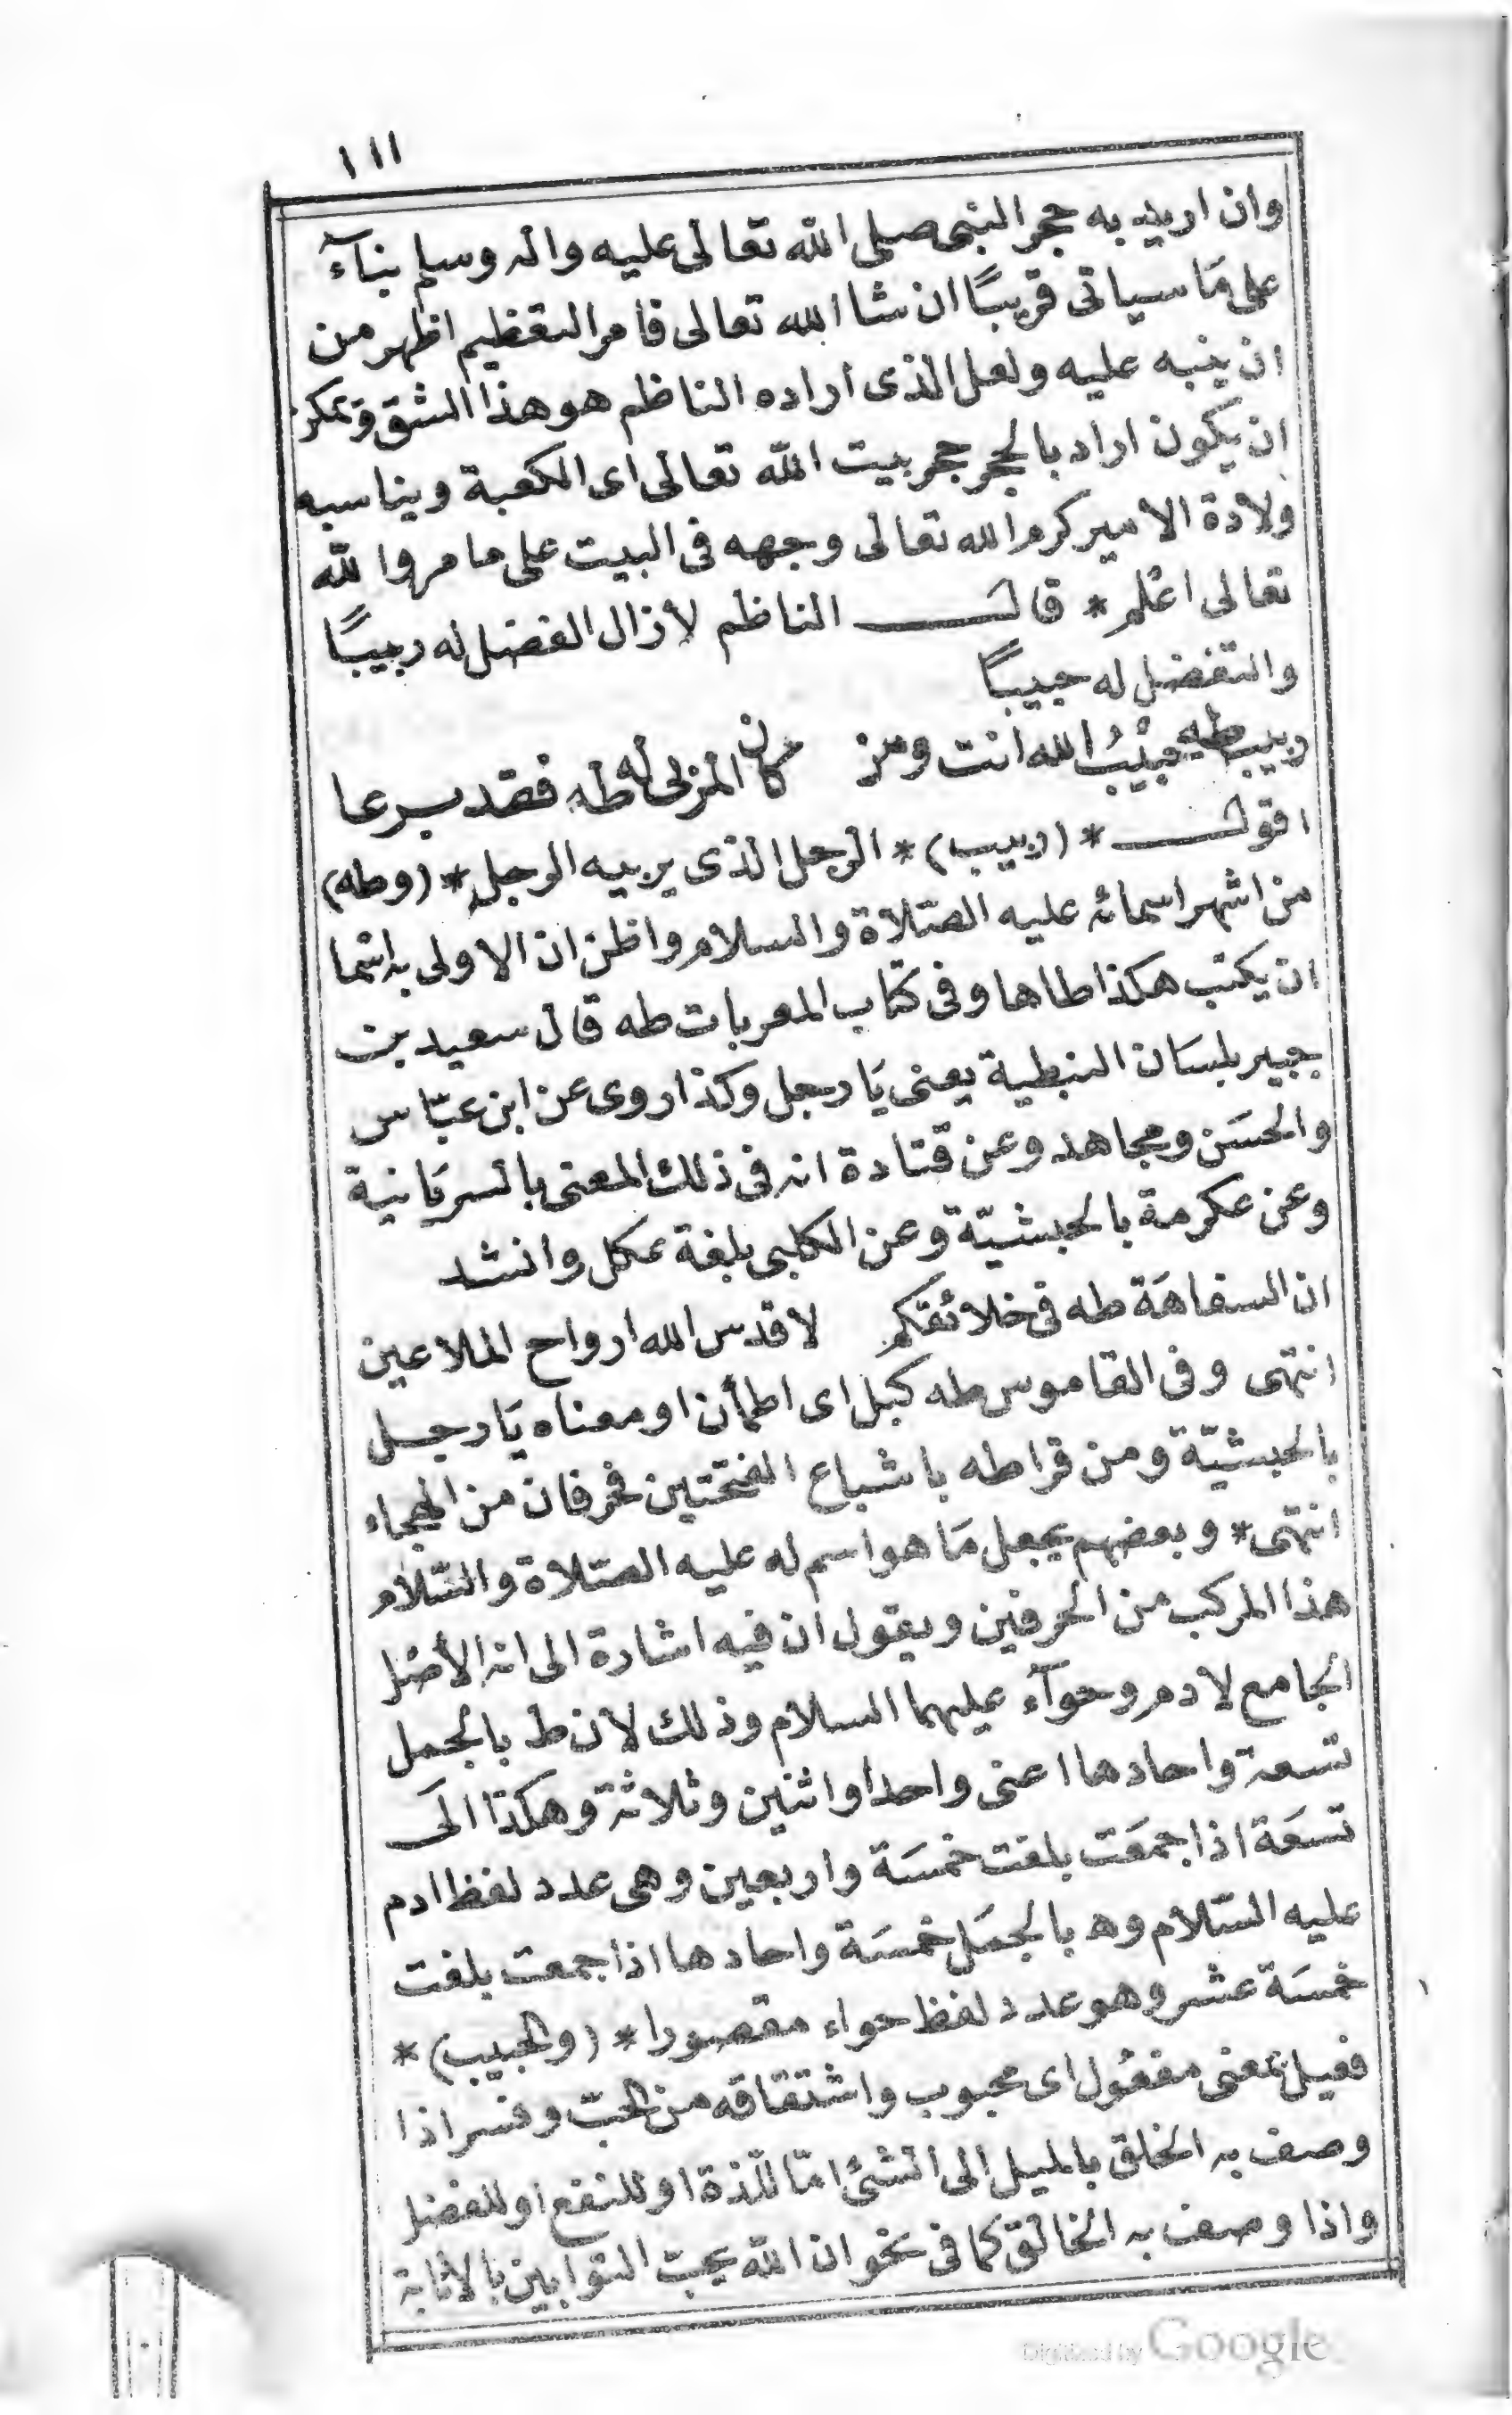 ١١١
وان اريد به حجر النبى صلى الله تعالى عليه واله وسلم بناء
على مَا سياتى قريبًا ان شا الله تعالى فامر التعظيم اظهر من
ان ينبه عليه ولعل الذى اراده الناظم هو هذا الشق ويمكن
ان يكون اراد بالحجر حجر بيت الله تعالى اى الكعبة ويناسبه
ولادة الامير كرم الله تعالى وجهه فى البيت على ما مر والله
تعالى اعلم * قال الناظم لازال الفضل له ربيبًا
والتفضل له حبيبًا
ربيب طه حبيْبُ الله انت ومن كان المربى له طه فقد برعا
اقول * (ربيب) * الرجل الذى يربيه الرجل * (وطه)
من اشهر اسمائه عليه الصّلاة والسلام واظن ان الاولى به اسما
ان يكتب هكذا طاها وفى كتاب المعربات طه قال سعيد بن
جبير بلسَان النبطية يعنى يَا رجل وكذا روى عن ابن عبّاس
والحسَن ومجاهد وعن قتادة انه فى ذلك المعنى بالسريَانية
وعن عكرمة بالحبشيّة وعن الكلبى بلغة عكل وانشد
ان السفاهَة طه فى خلائقكم لا قدس الله ارواح الملاعين
انتهى وفى القاموس طه كبل اى اطمأن او معناه يَا رجل
بالحبشيّة ومن قرا طه باشباع الفتحتين فحرفان من الهجاء
انتهى * وبعضهم يجعل مَا هو اسم له عليه الصّلاة والسّلام
هذا المركب من الحرفين ويقول ان فيه اشارة الى انه الأصْل
الجامع لادم وحوآء عليهما السلام وذلك لان ط بالجمل
تسعة واحادها اعنى واحدا واثنين وثلاثة وهكذا الَى
تسعَة اذا جمعَت بلغت خمسَة واربعين وهى عدد لفظ ادم
عليه السّلام وه بالجمَل خمسَة واحادها اذا جمعت بلغت
خمسَة عشر وهو عدد لفظ حواء مقصورا * (والحبيب) *
فعيل بمعنى مفعُول اى محبوب واشتقاقه من الحبّ وفسر اذا
وصف به الخلق بالميل الى الشئ امّا للّذة او للنفع او للفضل
واذا وصف به الخالق كما فى نحو ان الله يحب التوابين بالاثابة
Digitized by Google